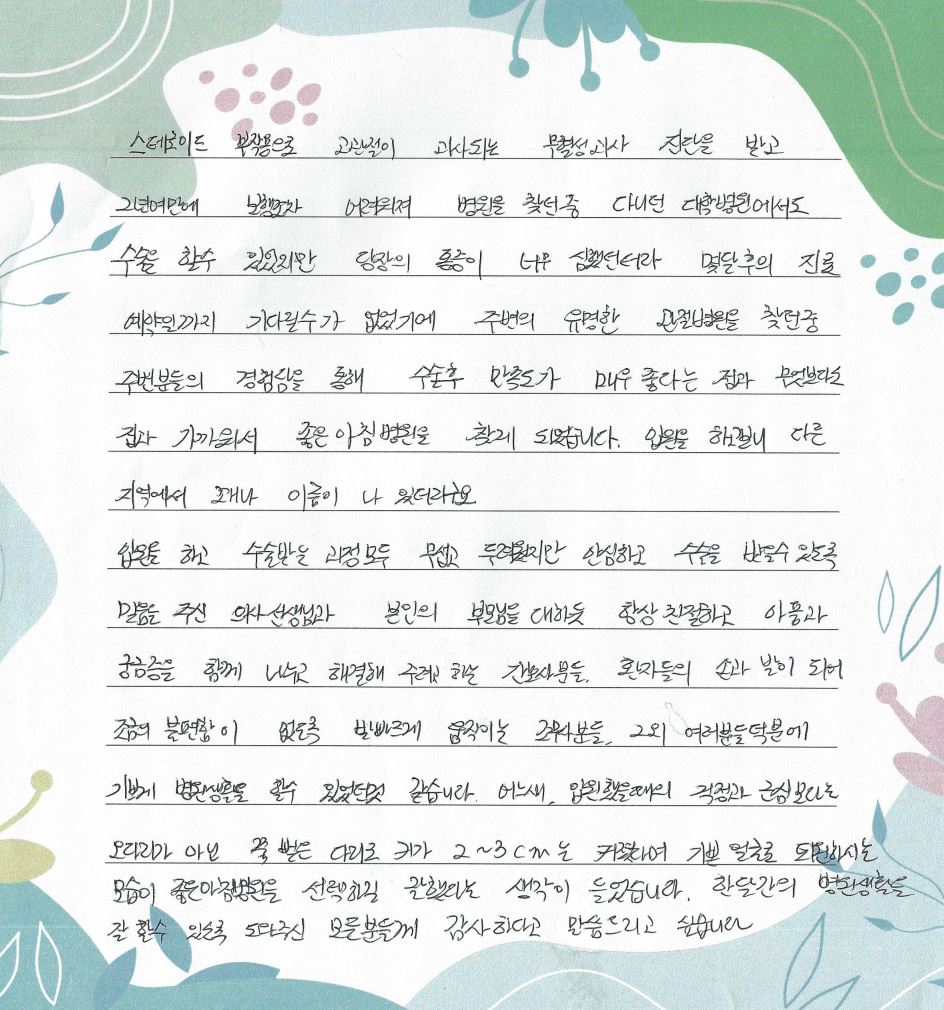 스테로이드 부작용으로 고관절이 괴사되는 무혈성괴사 진단을 받고
2년여만에 보행조차 어려워져 병원을 찾던중 다니던 대학병원에서도
수술을 할수 있었지만 당장의 통증이 너무 심했던터라 몇달후의 진료
예약일까지 기다릴수가 없었기에 주변의 유명한 관절병원을 찾던중
주변분들의 경험담을 통해 수술후 만족도가 매우 좋다는 점과 무엇보다도
집과 가까워서 좋은아침병원을 찾게 되었습니다. 입원을 하고보니 다른
지역에서 꽤나 이름이 나 있더라구요
입원을 하고 수술받는 과정모두 무섭고 두려웠지만 안심하고 수술을 받을수 있도록
말씀을 주신 의사선생님과 본인의 부모님을 대하듯 항상 친절하고 아픔과
궁금증을 함께 나누고 해결해 주려고 하는 간호사분들. 환자들의 손과 발이 되어
조금의 불편함이 없도록 발빠르게 움직이는 조무사분들, 그외 여러분들덕분에
기쁘게 병원생활을 할수 있었던것 같습니다. 어느새, 입원했을때의 걱정과 근심보다는
오다리가 아닌 쭉 뻗은 다리로 키가 2~3cm는 커졌다며 기쁜 얼굴로 퇴원하시는
모습이 좋은아침병원을 선택하길 잘했다는 생각이 들었습니다. 한달간의 병원생활을
잘 할수 있도록 도와주신 모든분들께 감사하다고 말씀드리고 싶습니다